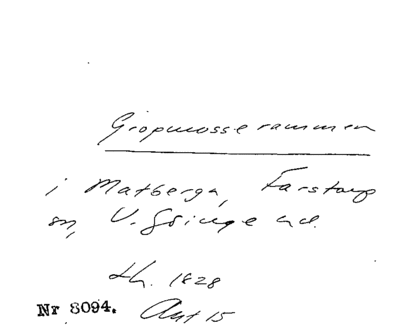 Gropmosserammen
i Matberga, Farstorp
sn, V. Göinge hd.
Lh. 1828
Nr 8094. Akt 15